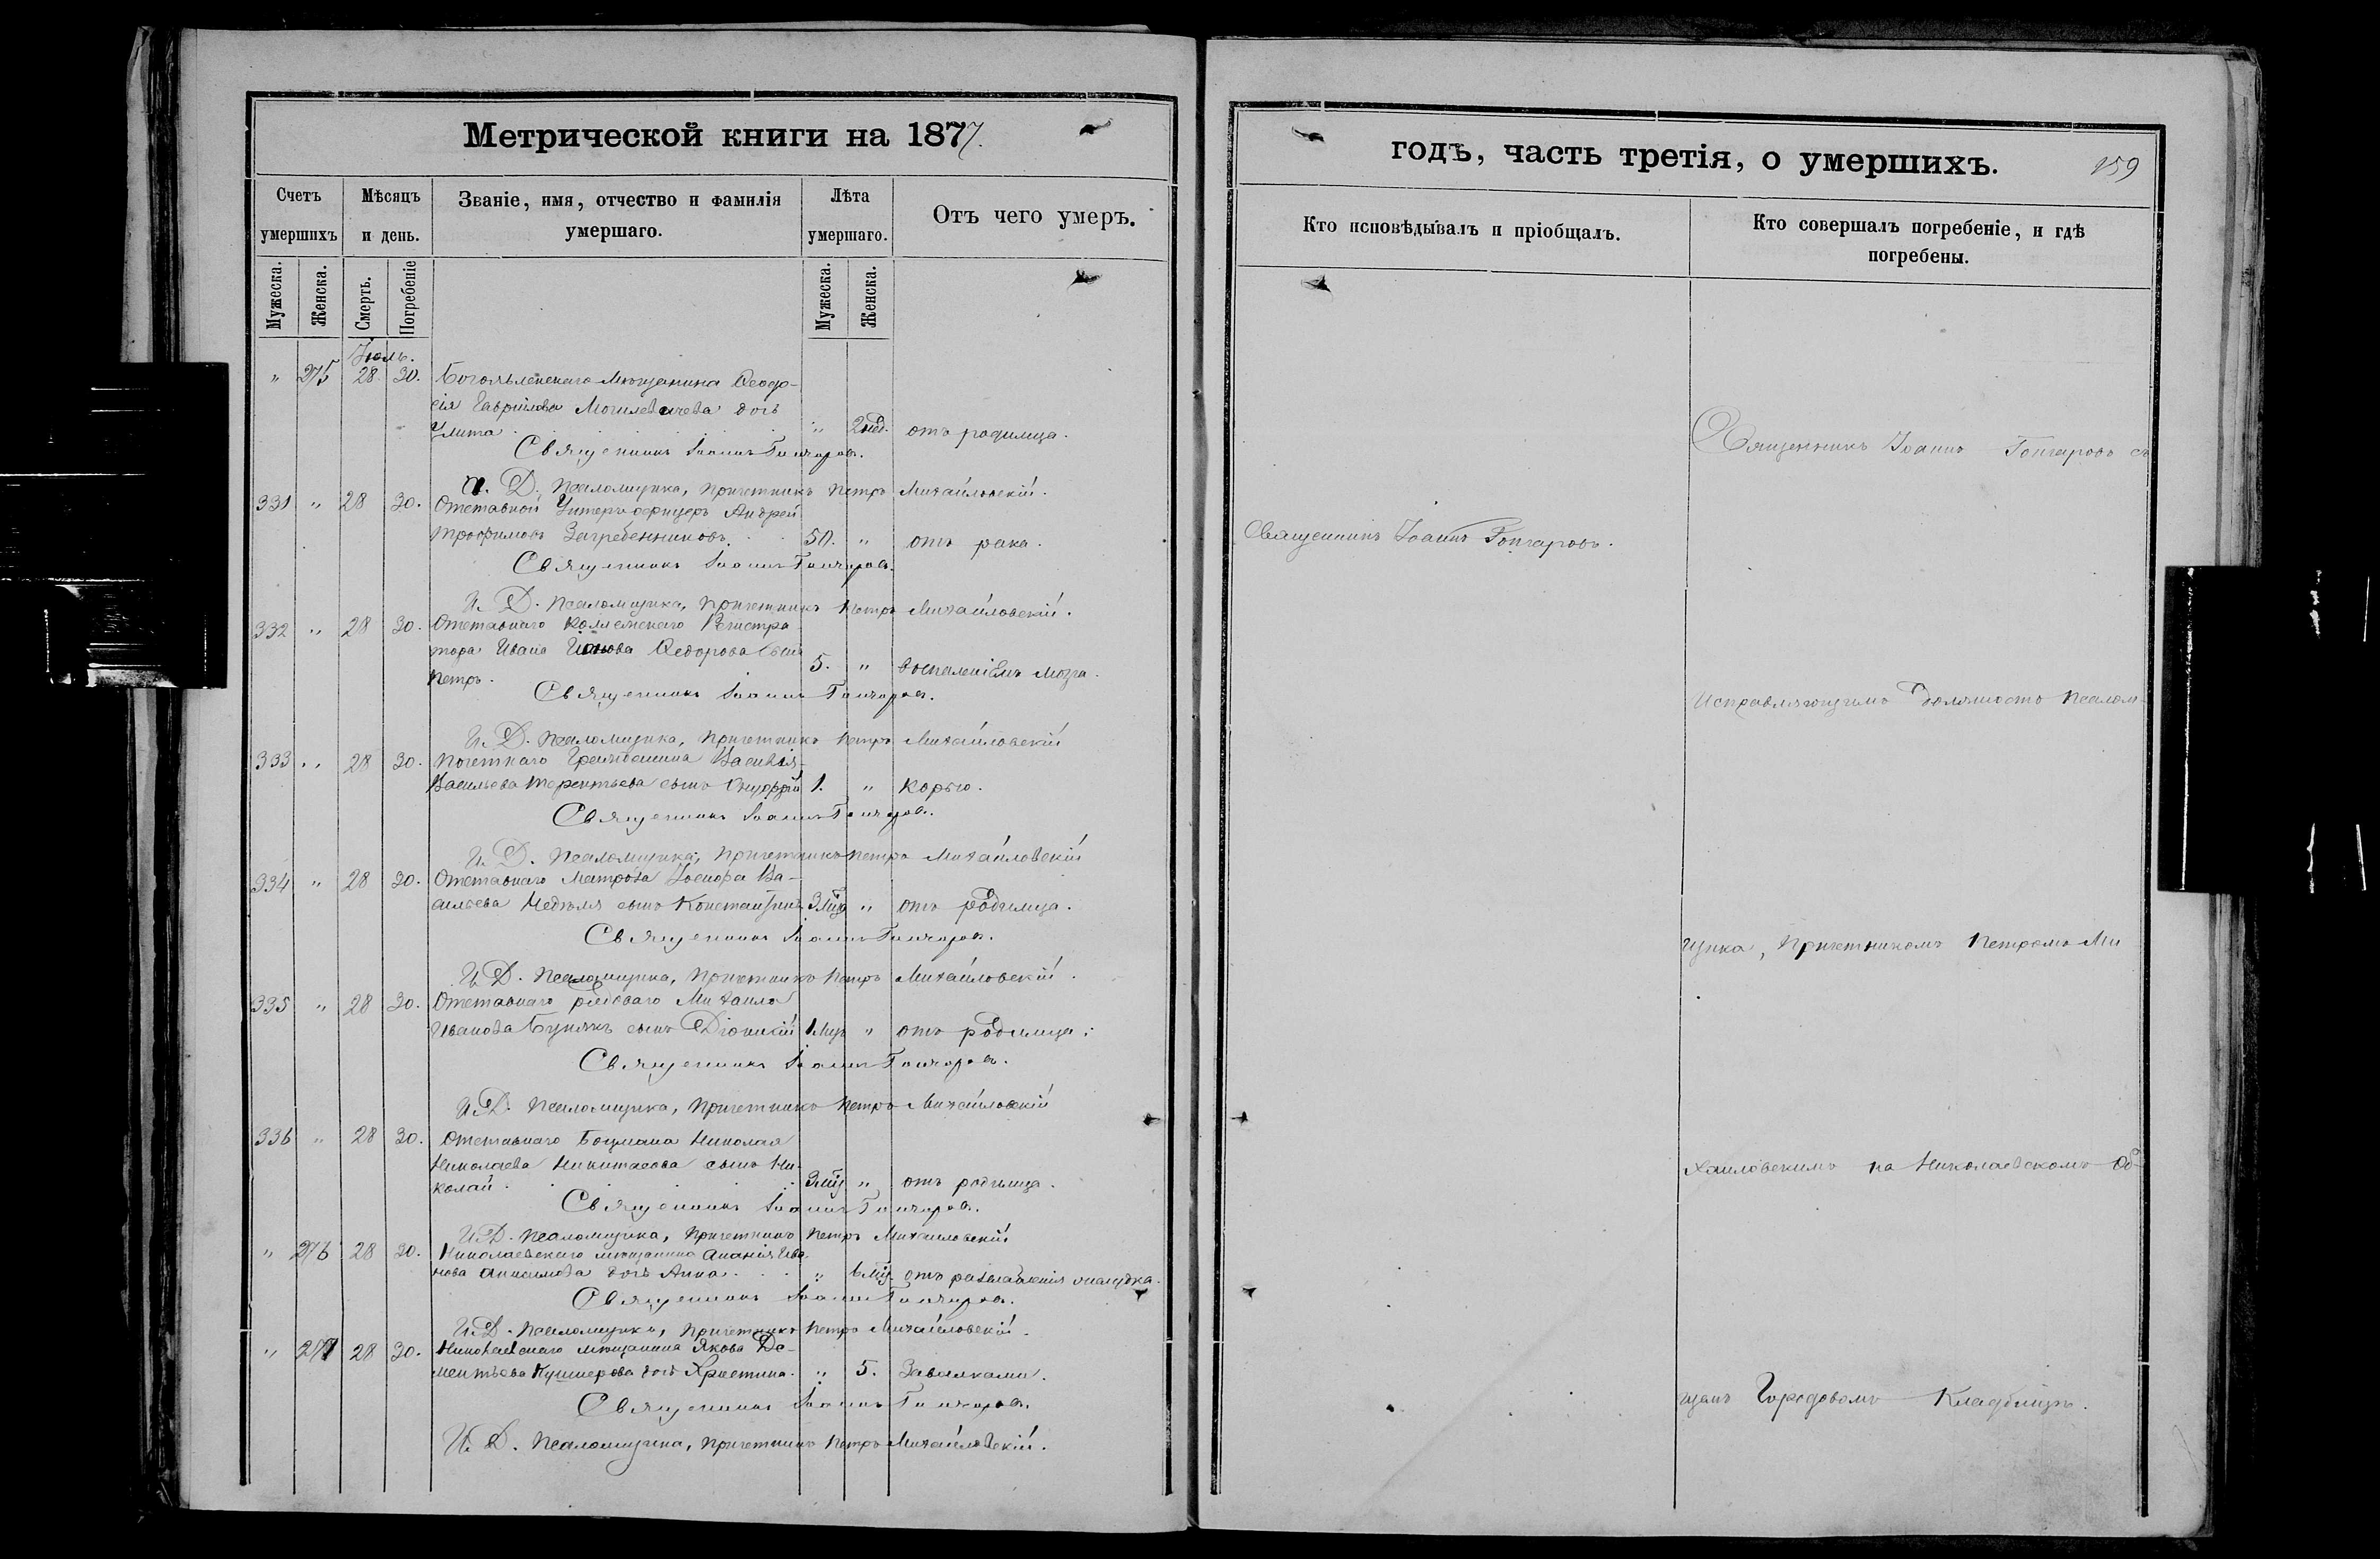 Метрической книги на 1877.
Счетъ умершихъ
Мѣсяцъ и день.
Званіе, имя, отчество и фамилія умершаго.
Лѣта умершаго.
Отъ чего умеръ.
Мужеска.
Женска.
Смерть.
Погребеніе
Мужеска.
Женска.
Іюль.
" 275 28. 30. Мѣщанина Ѳеодо-
сія Гаврилова дочь
Улита " 2 нед. отъ родимца.
Священникъ Іоаннъ Гончаровъ.
И. Д. Псаломщика, Причетникъ Петръ Михайловскій.
331 " 28 30. Отставной Унтеръ-офицеръ Андрей
Трофимовъ Загребенниковъ. 50. " отъ рака.
Священникъ Іоаннъ Гончаровъ.
И. Д. Псаломщика, Причетникъ Петръ Михайловскій.
332 " 28 30. Отставнаго Коллежскаго Регистра
тора Ивана Ѳедорова сынъ
Петръ. 5. " воспаленіемъ мозга.
Священникъ Іоаннъ Гончаровъ.
И. Д. Псаломщика, Причетникъ Петръ Михайловскій
333 " 28 30. Почетнаго Гражданина Василія
Васильева Терентьева сынъ Онуфрій 1. " Корью.
Священникъ Іоаннъ Гончаровъ.
И. Д. Псаломщика, Причетникъ Петръ Михайловскій
334 " 28 30. Отставнаго Матроса Іосифа Ва-
сильева сынъ Константинъ 3 мѣц " отъ родимца.
Священникъ Іоаннъ Гончаровъ.
И. Д. Псаломщика, Причетникъ Петръ Михайловскій.
335 " 28 30. Отставнаго рядоваго Михаила
Иванова сынъ Діонисій 1 мѣц " отъ родимца.
Священникъ Іоаннъ Гончаровъ.
И. Д. Псаломщика, Причетникъ Петръ Михайловскій
336 " 28 30. Отставнаго Боцмана Николая
Николаева Никитасова сынъ Ни-
колай. 3 мѣц " отъ родимца.
Священникъ Іоаннъ Гончаровъ.
И. Д. Псаломщика, Причетникъ Петръ Михайловскій
" 276 28 30. Николаевскаго мѣщанина Ананія Ива
нова Анисимова дочь Анна " 6 мѣц. отъ разслабленія желудка.
Священникъ Іоаннъ Гончаровъ.
И. Д. Псаломщика, Причетникъ Петръ Михайловскій.
" 277 28 30. Николаевскаго мѣщанина Якова Де-
ментьева Кушнерова дочь Христина. " 5. Завалками.
Священникъ Іоаннъ Гончаровъ.
И. Д. Псаломщика, Причетникъ Петръ Михайловскій.
годъ, часть третія, о умершихъ.
159
Кто исповѣдывалъ и пріобщалъ.
Кто совершалъ погребеніе, и гдѣ погребены.
Священникъ Іоаннъ Гончаровъ.
Священникъ Іоаннъ Гончаровъ съ
Исправляющимъ должность Псалом
щика, Причетникомъ Петромъ Ми
хайловскимъ на Николаевскомъ Об
щемъ Городовомъ Кладбищѣ.